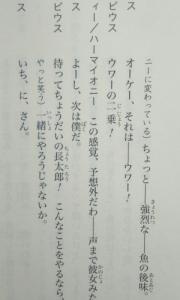 ニーに変わっている）ちょっと――強烈な――魚の後味。
ス　オーケー、それは――ウワー！
ピウス　ウワーの二乗！
ィー／ハーマイオニー　この感覚、予想外だわ――声まで彼女みた
ピウス　よーし、次は僕だ。
ス　待ってちょうだいの長太郎！　こんなことをやるなら、
やっと笑う）一緒にやろうじゃないか。
ス　いち、に、さん。